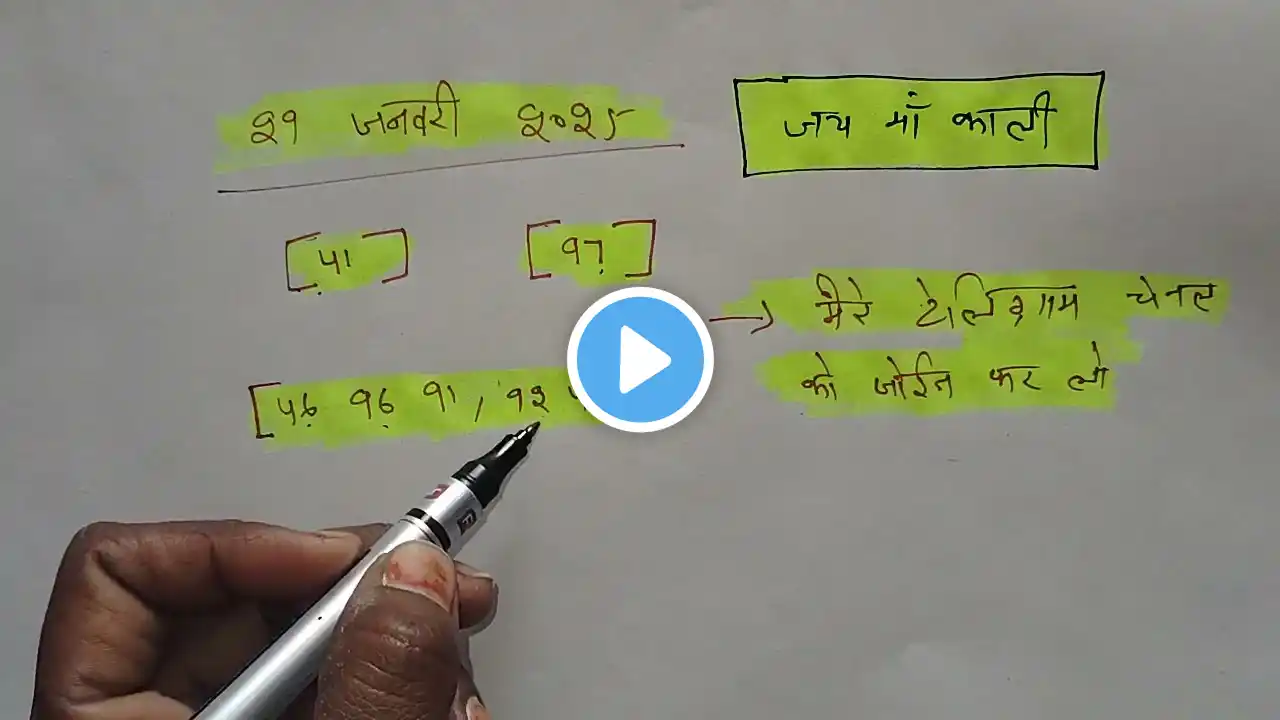 २१ जनवरी २०२५
जय माँ काली
[ ५१ ] [ १७ ]
→ मेरे टेलिग्राम चेनल
को जोईन कर लो
[ ५६ १६ ११, १२